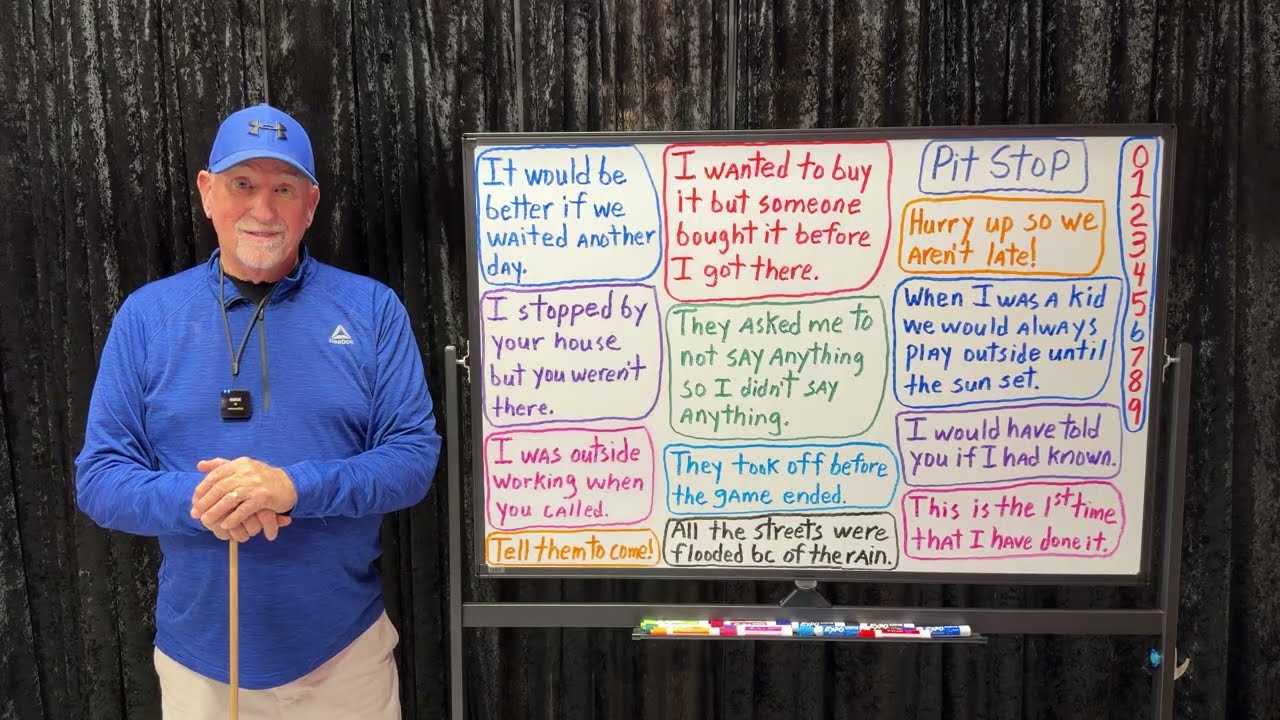 It would be
better if we
waited another
day.
I stopped by
your house
but you weren't
there.
I was outside
working when
you called.
Tell them to come!
I wanted to buy
it but someone
bought it before
I got there.
They asked me to
not say anything
so I didn't say
anything.
They took off before
the game ended.
All the streets were
flooded bc of the rain.
Pit Stop
Hurry up so we
aren't late!
When I was a kid
we would always
play outside until
the sun set.
I would have told
you if I had known.
This is the 1st time
that I have done it.
0
1
2
3
4
5
6
7
8
9
Reebok